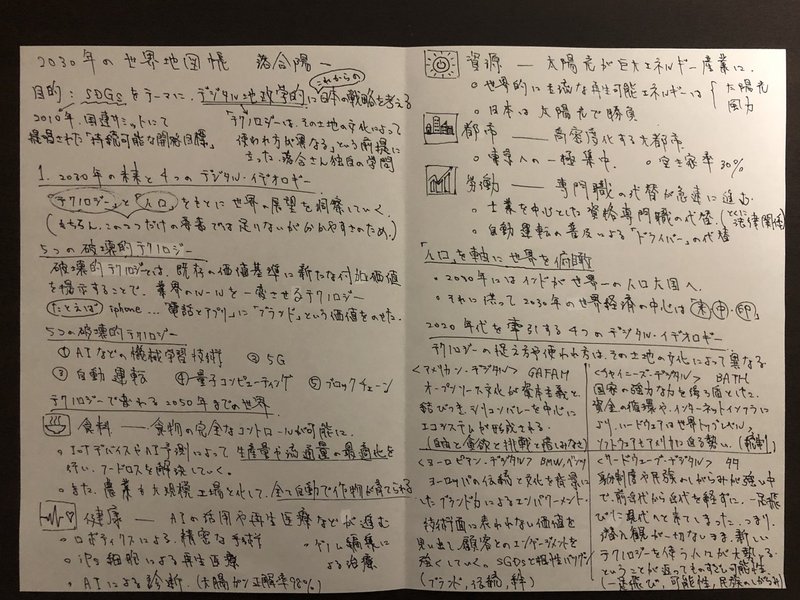 2030年の世界地図帳 落合陽一
これからの
目的：SDGsをテーマに、デジタル地政学的に日本の戦略を考える
2015年、国連サミットにて
提唱された「持続可能な開発目標」
「テクノロジーは、その土地の文化によって
使われ方が異なる」という前提に
立った、落合さん独自の学問
1. 2030年の未来と4つのデジタル・イデオロギー
「テクノロジー」と「人口」をもとに世界の展望を洞察していく。
(もちろん、この2つだけの要素では足りないが分かりやすさのため。)
5つの破壊的テクノロジー
破壊的テクノロジーとは、既存の価値基準に新たな付加価値
を提示することで、業界のルールを一変させるテクノロジー
たとえば iphone…「電話とアプリ」に「ブランド」という価値をのせた。
5つの破壊的テクノロジー
① AIなどの機械学習技術 ② 5G
③ 自動運転 ④ 量子コンピューティング ⑤ ブロックチェーン
テクノロジーで変わる2050年までの世界
食料 — 食物の完全なコントロールが可能に。
・IoTデバイスやAI予測によって生産量や流通量の最適化を
行い、フードロスを解決していく。
・また、農業も大規模工場と化して、全て自動で作物が育てられる
健康 — AIの活用や再生医療などが進む
・ロボティクスによる、精密な手術
・ゲノム編集に
よる治療
・iPS細胞による再生医療
・AIによる診断。(大腸がん正解率98%)
資源 — 太陽光が巨大エネルギー産業に。
・世界的に主流な再生可能エネルギーは { 太陽光
風力
・日本は太陽光で勝負
都市 — 高密度化する大都市。
・東京への一極集中。 ・空き家率30%
労働 — 専門職の代替が急速に進む
・士業を中心とした資格専門職の代替。(とくに
法律関係)
・自動運転の普及による「ドライバー」の代替
「人口」を軸に世界を俯瞰
・2030年にはインドが世界一の人口大国へ。
・それに伴って2030年の世界経済の中心は「米・中・印」
2020年代を牽引する4つのデジタル・イデオロギー
テクノロジーの捉え方や使われ方は、その土地の文化によって異なる
<アメリカン・デジタル> GAFAM
オープンソース文化が資本主義と
結びつき、シリコンバレーを中心に
エコシステムが形成される。
(自由と金欲と挑戦と憎しみなど)
<チャイニーズ・デジタル> BATH
国家の強力な力を後ろ盾とした、
資金の循環や、インターネットインフラに
より、ハードウェアは世界トップレベル。
ソフトウェアもアメリカに迫る勢い。(統制)
<ヨーロピアン・デジタル> BMW、ベンツ
ヨーロッパの伝統と文化を背景に
したブランド力によるエンパワーメント。
技術面に表われない価値を
見い出し、顧客とのエンゲージメントを
強くしていく。SDGsと相性バツグン
(ブランド、伝統、絆)
<サードウェーブ・デジタル>
身分制度や民族のしがらみが強い中
で、前近代から近代を経ずに、一足飛
びに現代へと来てしまった。つまり、
潜入観が一切ないまま、新しい
テクノロジーを使う人々が大勢いる。
ということが返ってものすごい可能性。
(一足飛び、可能性、民族のしがらみ)